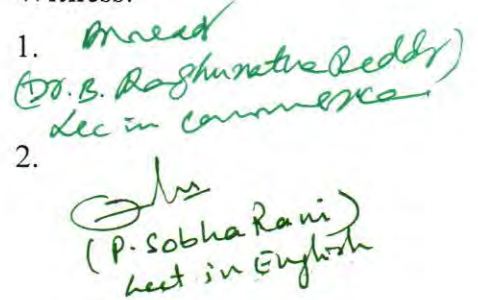 Witness:
1.
(Dr. B. Raghunatha Reddy)
Lec in commerce
2.
(P. Sobha Rani)
Lect in English